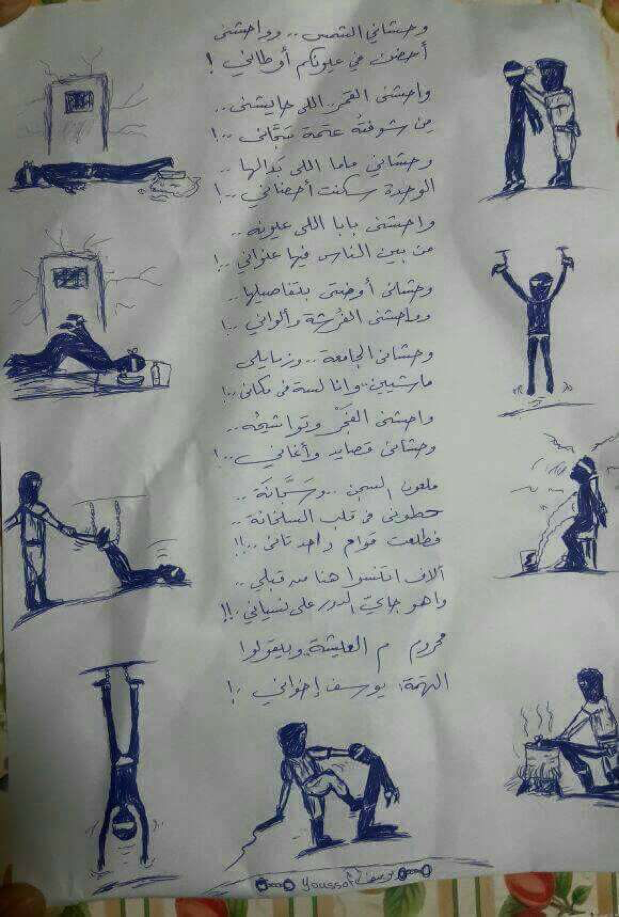 وحشاني الشمس .. وواحشني
أحضن في عيونكم أوطاني !
واحشني القمر اللي حايشني ..
من شوفته عتمة سجاني ..!
وحشاني ماما اللي بدالها ..
الوحدة سكنت أحضاني ..!
واحشني بابا اللي عيونه ..
من بين الناس فيها عنواني ..!
وحشاني أوضتي بتفاصيلها ..
وواحشني الفرشة وألواني ..!
وحشاني الجامعة .. وزمايلي
ماشيين .. وانا لسة في مكاني ..!
واحشني الفجر وتواشيحه ..
وحشاني قصايد وأغاني ..!
ملعون السجن .. وسجانة ..
حطوني في قلب السلخانة ..
فطلعت قوام واحد تاني ..!!
آلاف اتنسوا هنا من قبلي ..
واهو جاي الدور على نسياني ..!!
محروم م العيشة، وبيقولوا
التهمة: يوسف إخواني ..!
Youssof يوسف